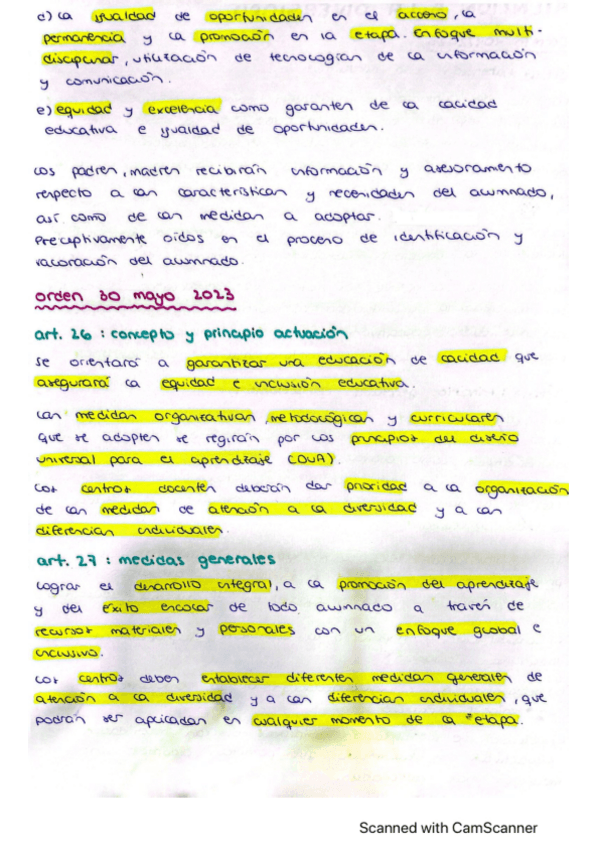 d) La igualdad de oportunidades en el acceso, la
permanencia y la promoción en la etapa. Enfoque multi-
disciplinar, utilización de tecnologías de la información
y comunicación.
e) equidad y excelencia como garantes de la calidad
educativa e igualdad de oportunidades.
Los padres, madres recibirán información y asesoramiento
respecto a las características y necesidades del alumnado,
así como de las medidas a adoptar.
Preceptivamente oídos en el proceso de identificación y
valoración del alumnado.
orden 30 mayo 2023
art. 26 : concepto y principio actuación
Se orientará a garantizar una educación de calidad que
asegurará la equidad e inclusión educativa.
Las medidas organizativas, metodológicas y curriculares
que se adopten se regirán por los principios del diseño
universal para el aprendizaje (DUA).
Los centros docentes deberán dar prioridad a la organización
de las medidas de atención a la diversidad y a las
diferencias individuales.
art. 27 : medidas generales
Lograr el desarrollo integral, a la promoción del aprendizaje
y del éxito escolar de todo alumnado a través de
recursos materiales y personales con un enfoque global e
inclusivo.
Los centros deben establecer diferentes medidas generales de
atención a la diversidad y a las diferencias individuales, que
podrán ser aplicadas en cualquier momento de la *etapa.
Scanned with CamScanner